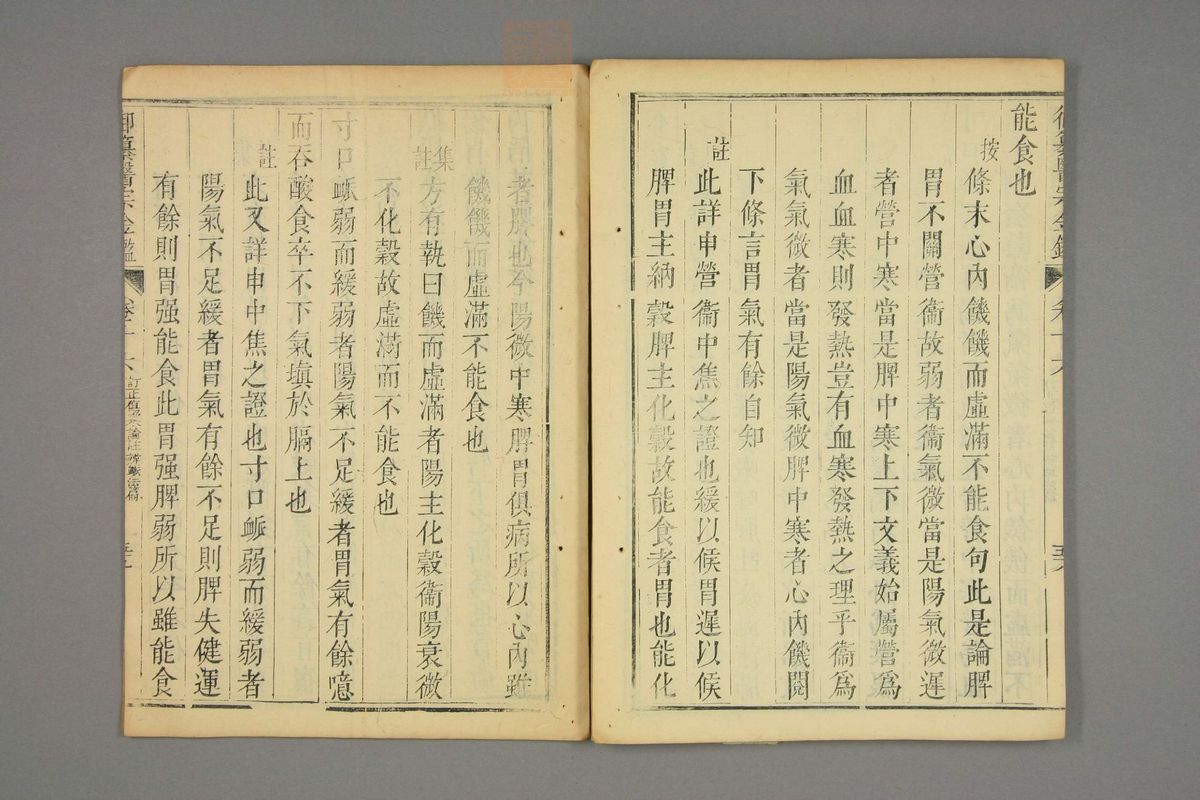 能食也
按條末心內饑饑而虛滿不能食句此是論脾
胃不關營衞故弱者衞氣微當是陽氣微遲
者營中寒當是脾中寒上下文義始屬營爲
血血寒則發熱豈有血寒發熱之理乎衞爲
氣氣微者當是陽氣微脾中寒者心內饑閱
下條言胃氣有餘自知
註此詳申營衞中焦之證也緩以候胃遲以候
脾胃主納穀脾主化穀故能食者胃也能化
者脾也今陽微中寒脾胃俱病所以心內雖
饑饑而虛滿不能食也
集註方有執曰饑而虛滿者陽主化穀衞陽衰微
不化穀故虛滿而不能食也
寸口衇弱而緩弱者陽氣不足緩者胃氣有餘噫
而吞酸食卒不下氣塡於膈上也
註此又詳申中焦之證也寸口衇弱而緩弱者
陽氣不足緩者胃氣有餘不足則脾失健運
有餘則胃强能食此胃强脾弱所以雖能食
御纂醫宗金鑑